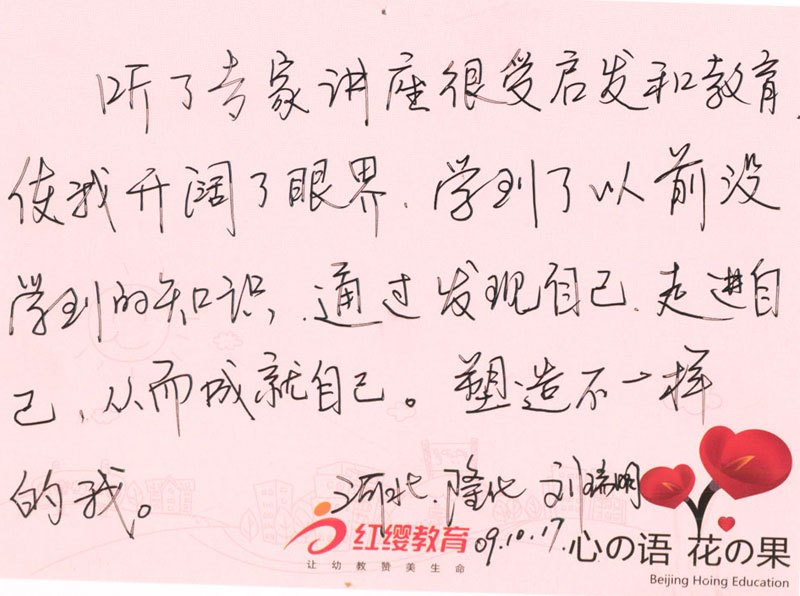 听了专家讲座很受启发和教育，
使我开阔了眼界，学到了以前没
学到的知识，通过发现自己，走进自
己，从而成就自己。塑造不一样
的我。
河北，隆化 刘瑞明
09.10.17.
红缨教育
让幼教赞美生命
心の语 花の果
Beijing Hoing Education